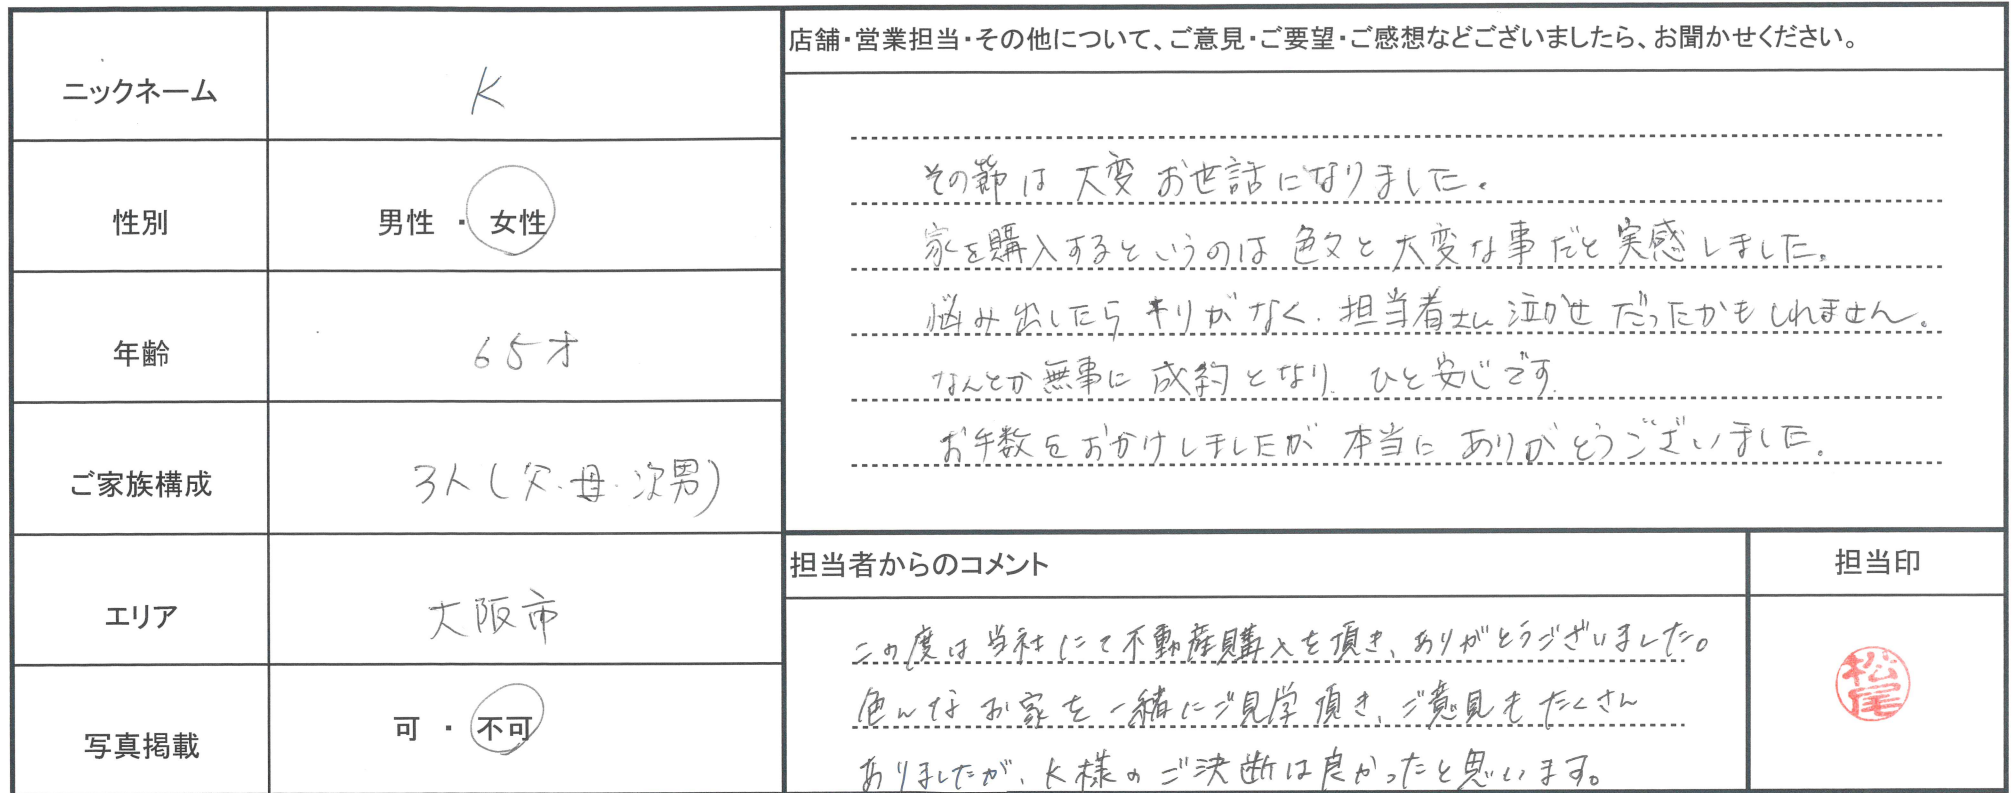 ニックネーム K
性別 男性 ・ 女性
年齢 65才
ご家族構成 3人(父・母・次男)
エリア 大阪市
写真掲載 可 ・ 不可
店舗・営業担当・その他について、ご意見・ご要望・ご感想などございましたら、お聞かせください。
その節は大変お世話になりました。
家を購入するというのは色々と大変な事だと実感しました。
悩み出したらキリがなく、担当者さん泣かせだったかもしれません。
なんとか無事に成約となり、ひと安心です。
お手数をおかけしましたが本当にありがとうございました。
担当者からのコメント
この度は当社にて不動産購入を頂き、ありがとうございました。
色んなお家を一緒にご見学頂き、ご意見もたくさん
ありましたが、K様のご決断は良かったと思います。
担当印
松尾